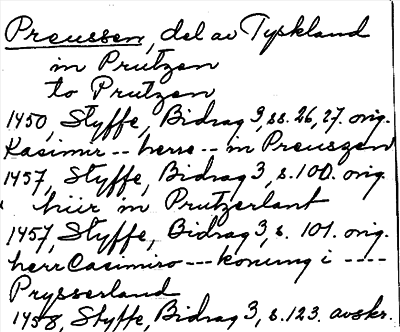 Preussen, del av Tyskland
in Prutzen
to Prutzen
1450, Styffe, Bidrag 3, ss. 26, 27. orig.
Kasimir -- herre -- in Preuszen
1457, Styffe, Bidrag 3, s. 100. orig.
hiir in Prutzerlant
1457, Styffe, Bidrag 3, s. 101. orig.
herr Casimiro --- konung i ----
Prysserland
1458, Styffe, Bidrag 3, s. 123. avskr.